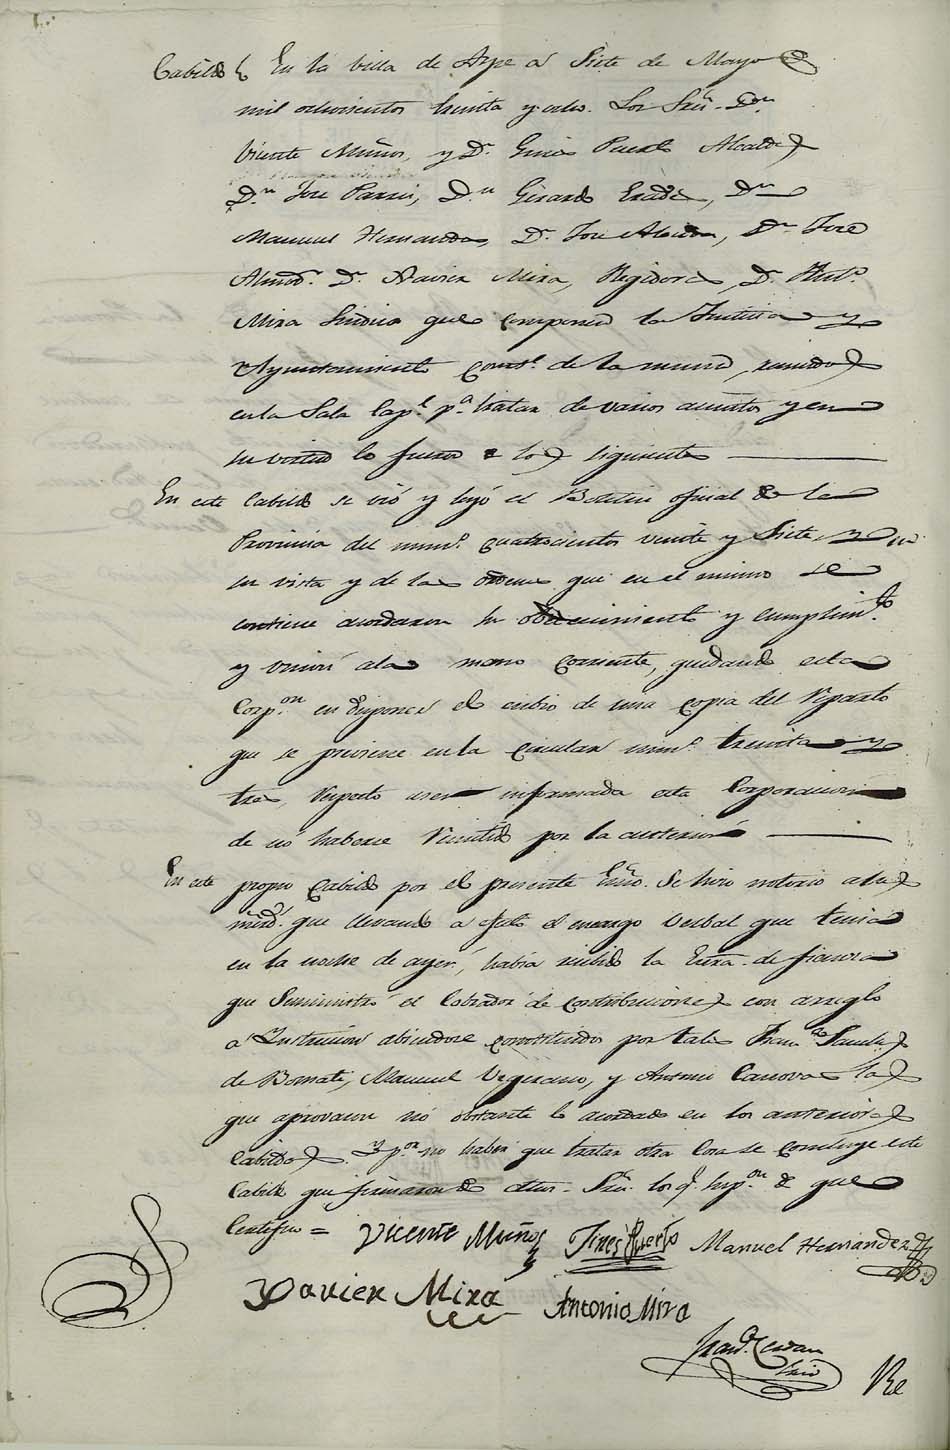 Cabildo En la villa de Aspe a Siete de Mayo de
mil ochocientos treinta y ocho. Los Sres. Dn.
Vicente Muñoz, y Dn. Gines Puerto Alcaldes
Dn. Jose Pavia, Dn. Gerardo, Dn.
Manuel Hernandez, Dn. Jose, Dn. Jose
Almod.r Dn. Xavier Mira, Regidores, Dn. Ant.o
Mira Sindico que componen la Justicia y
Ayuntamiento const.l de la misma, reunidos
en la Sala Cap.l p.a tratar de varios asuntos y en
su virtud lo fueron de los siguientes
En este Cabildo se vió y leyó el Boletin oficial de la
Provincia del num.o cuatrocientos veinte y Siete y en
su vista y de las ordenes que en el mismo se
contiene acordaron su obedecimiento y cumplim.to
y uniri a la mano corriente, quedando esta
Corp.on en disponer el embio de una copia del Reparto
que se previene en la circular num.o treinta y
tres, respecto a ser informada esta Corporacion
de no haberse remitido por la anterior
En este propio Cabildo por el presente Ssño. Se hizo notorio a las
mrds. que llevando a efecto el encargo verbal que tenia
en la noche de ayer, habia recibido la Essra. de fianza
que Suministró el Cobrador de Contribuciones con arreglo
a Instrucion abiendose constituidos por tales Fran.co Sanchez
de Bernabe, Manuel, y Antonio Canovas la
que aprovaron no obstante lo acordado en los anteriores
Cabildos. Y p.r no haber que tratar otra Cosa se concluye este
Cabildo que firmaron de dhos. Sres. los q.e sup.on de que
Certifico =
Vicente Muñoz Gines Puerto Manuel Hernandez
Xavier Mira Antonio Mira
Fran.co Cerdan
Srio
Re